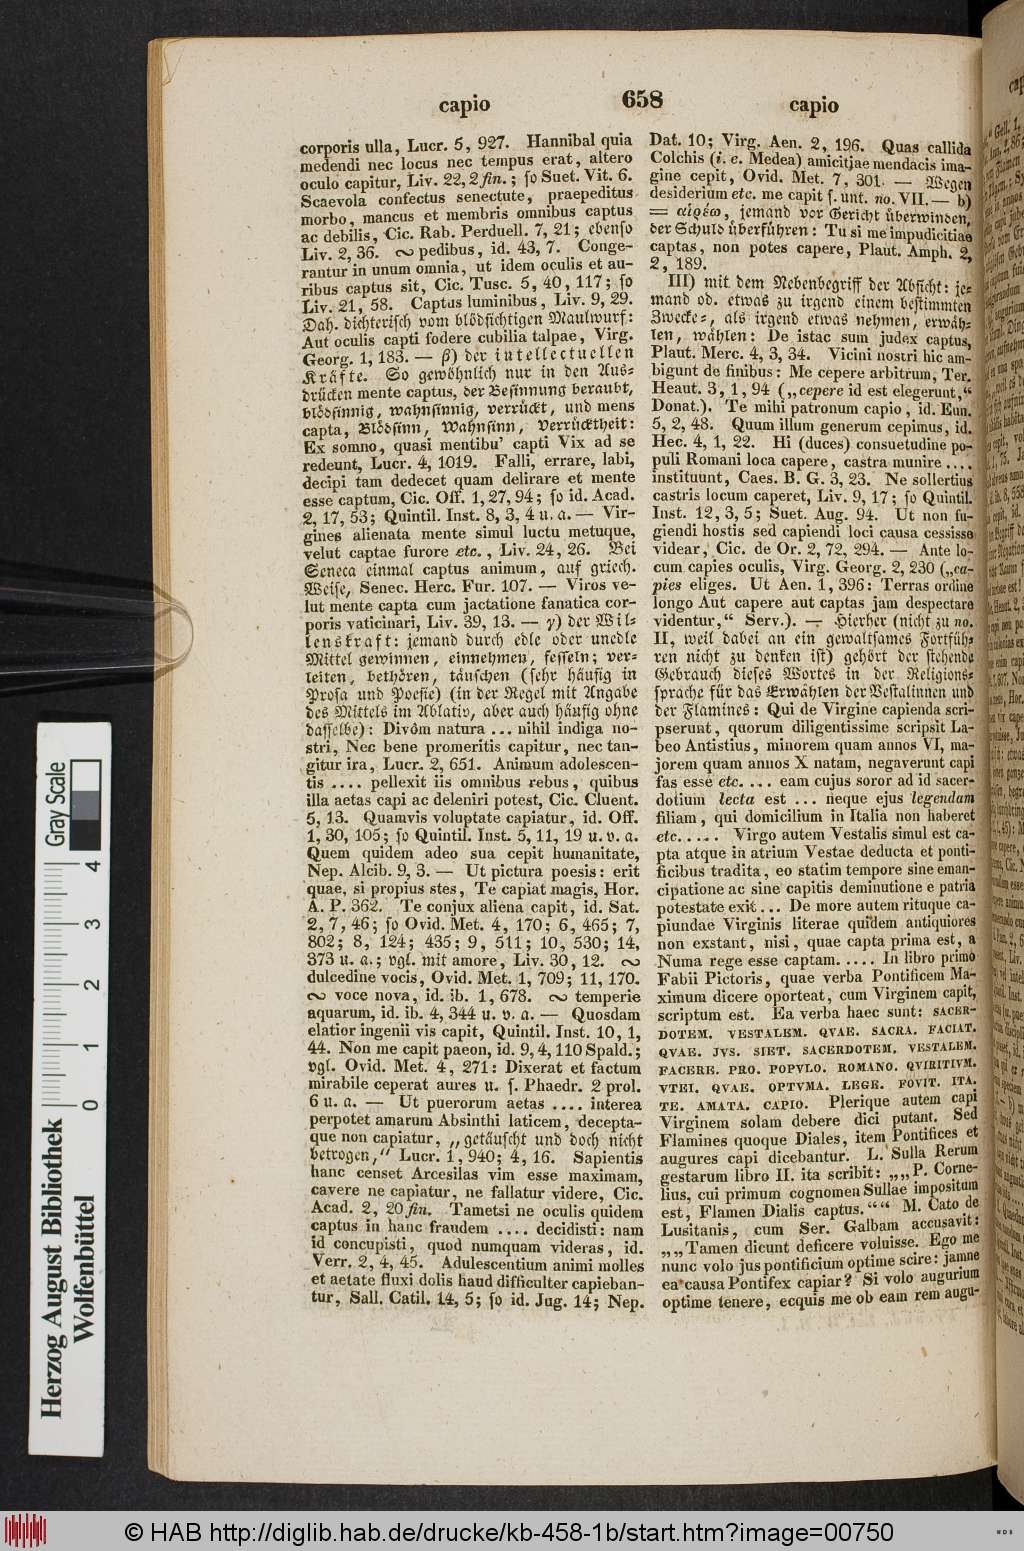 capio 658 capio
corporis ulla, Lucr. 5, 927. Hannibal quia
medendi nec locus nec tempus erat, altero
oculo capitur, Liv. 22, 2 fin.; ſo Suet. Vit. 6.
Scaevola confectus senectute, praepeditus
morbo, mancus et membris omnibus captus
ac debilis, Cic. Rab. Perduell. 7, 21; ebenſo
Liv. 2, 36. ∾ pedibus, id. 43, 7. Conge-
rantur in unum omnia, ut idem oculis et au-
ribus captus sit, Cic. Tusc. 5, 40, 117; ſo
Liv. 21, 58. Captus luminibus, Liv. 9, 29.
Dah. dichteriſch vom blödſichtigen Maulwurf:
Aut oculis capti fodere cubilia talpae, Virg.
Georg. 1, 183. — β) der intellectuellen
Kräfte. So gewöhnlich nur in den Aus-
drücken mente captus, der Beſinnung beraubt,
blödſinnig, wahnſinnig, verrückt, und mens
capta, Blödſinn, Wahnſinn, Verrücktheit:
Ex somno, quasi mentibu' capti Vix ad se
redeunt, Lucr. 4, 1019. Falli, errare, labi,
decipi tam dedecet quam delirare et mente
esse captum, Cic. Off. 1, 27, 94; ſo id. Acad.
2, 17, 53; Quintil. Inst. 8, 3, 4 u. a. — Vir-
gines alienata mente simul luctu metuque,
velut captae furore etc., Liv. 24, 26. Bei
Seneca einmal captus animum, auf griech.
Weiſe, Senec. Herc. Fur. 107. — Viros ve-
lut mente capta cum jactatione fanatica cor-
poris vaticinari, Liv. 39, 13. — γ) der Wil-
lenskraft: jemand durch edle oder unedle
Mittel gewinnen, einnehmen, feſſeln; ver-
leiten, bethören, täuſchen (ſehr häufig in
Proſa und Poeſie) (in der Regel mit Angabe
des Mittels im Ablativ, aber auch häufig ohne
daſſelbe): Divôm natura ... nihil indiga no-
stri, Nec bene promeritis capitur, nec tan-
gitur ira, Lucr. 2, 651. Animum adolescen-
tis .... pellexit iis omnibus rebus, quibus
illa aetas capi ac deleniri potest, Cic. Cluent.
5, 13. Quamvis voluptate capiatur, id. Off.
1, 30, 105; ſo Quintil. Inst. 5, 11, 19 u. v. a.
Quem quidem adeo sua cepit humanitate,
Nep. Alcib. 9, 3. — Ut pictura poesis: erit
quae, si propius stes, Te capiat magis, Hor.
A. P. 362. Te conjux aliena capit, id. Sat.
2, 7, 46; ſo Ovid. Met. 4, 170; 6, 465; 7,
802; 8, 124; 435; 9, 511; 10, 530; 14,
373 u. a.; vgl. mit amore, Liv. 30, 12. ∾
dulcedine vocis, Ovid. Met. 1, 709; 11, 170.
∾ voce nova, id. ib. 1, 678. ∾ temperie
aquarum, id. ib. 4, 344 u. v. a. — Quosdam
elatior ingenii vis capit, Quintil. Inst. 10, 1,
44. Non me capit paeon, id. 9, 4, 110 Spald.;
vgl. Ovid. Met. 4, 271: Dixerat et factum
mirabile ceperat aures u. ſ. Phaedr. 2 prol.
6 u. a. — Ut puerorum aetas .... interea
perpotet amarum Absinthi laticem, decepta-
que non capiatur, „getäuſcht und doch nicht
betrogen,“ Lucr. 1, 940; 4, 16. Sapientis
hanc censet Arcesilas vim esse maximam,
cavere ne capiatur, ne fallatur videre, Cic.
Acad. 2, 20 fin. Tametsi ne oculis quidem
captus in hanc fraudem .... decidisti: nam
id concupisti, quod numquam videras, id.
Verr. 2, 4, 45. Adulescentium animi molles
et aetate fluxi dolis haud difficulter capieban-
tur, Sall. Catil. 14, 5; ſo id. Jug. 14; Nep.
Dat. 10; Virg. Aen. 2, 196. Quas callida
Colchis (i. e. Medea) amicitiae mendacis ima-
gine cepit, Ovid. Met. 7, 301. — Wegen
desiderium etc. me capit ſ. unt. no. VII. — b)
= αἱρέω, jemand vor Gericht überwinden,
der Schuld überführen: Tu si me impudicitiae
captas, non potes capere, Plaut. Amph. 2,
2, 189.
III) mit dem Nebenbegriff der Abſicht: je-
mand od. etwas zu irgend einem beſtimmten
Zwecke-, als irgend etwas nehmen, erwäh-
len, wählen: De istac sum judex captus,
Plaut. Merc. 4, 3, 34. Vicini nostri hic am-
bigunt de finibus: Me cepere arbitrum, Ter.
Heaut. 3, 1, 94 („cepere id est elegerunt,“
Donat.). Te mihi patronum capio, id. Eun.
5, 2, 48. Quum illum generum cepimus, id.
Hec. 4, 1, 22. Hi (duces) consuetudine po-
puli Romani loca capere, castra munire ....
instituunt, Caes. B. G. 3, 23. Ne sollertius
castris locum caperet, Liv. 9, 17; ſo Quintil.
Inst. 12, 3, 5; Suet. Aug. 94. Ut non fu-
giendi hostis sed capiendi loci causa cessisse
videar, Cic. de Or. 2, 72, 294. — Ante lo-
cum capies oculis, Virg. Georg. 2, 230 („ca-
pies eliges. Ut Aen. 1, 396: Terras ordine
longo Aut capere aut captas jam despectare
videntur,“ Serv.). — Hierher (nicht zu no.
II, weil dabei an ein gewaltſames Fortfüh-
ren nicht zu denken iſt) gehört der ſtehende
Gebrauch dieſes Wortes in der Religions-
ſprache für das Erwählen der Veſtalinnen und
der Flamines: Qui de Virgine capienda scri-
pserunt, quorum diligentissime scripsit La-
beo Antistius, minorem quam annos VI, ma-
jorem quam annos X natam, negaverunt capi
fas esse etc. ... eam cujus soror ad id sacer-
dotium lecta est ... neque ejus legendam
filiam, qui domicilium in Italia non haberet
etc. .... Virgo autem Vestalis simul est ca-
pta atque in atrium Vestae deducta et ponti-
ficibus tradita, eo statim tempore sine eman-
cipatione ac sine capitis deminutione e patria
potestate exit ... De more autem rituque ca-
piundae Virginis literae quidem antiquiores
non exstant, nisi, quae capta prima est, a
Numa rege esse captam. .... In libro primo
Fabii Pictoris, quae verba Pontificem Ma-
ximum dicere oporteat, cum Virginem capit,
scriptum est. Ea verba haec sunt: SACER-
DOTEM. VESTALEM. QVAE. SACRA. FACIAT.
QVAE. JVS. SIET. SACERDOTEM. VESTALEM.
FACERE. PRO. POPVLO. ROMANO. QVIRITIVM.
VTEI. QVAE. OPTVMA. LEGE. FOVIT. ITA.
TE. AMATA. CAPIO. Plerique autem capi
Virginem solam debere dici putant. Sed
Flamines quoque Diales, item Pontifices et
augures capi dicebantur. L. Sulla Rerum
gestarum libro II. ita scribit: „„P. Corne-
lius, cui primum cognomen Sullae impositum
est, Flamen Dialis captus.““ M. Cato de
Lusitanis, cum Ser. Galbam accusavit:
„„Tamen dicunt deficere voluisse. Ego me
nunc volo jus pontificium optime scire: jamne
ea causa Pontifex capiar? Si volo augurium
optime tenere, ecquis me ob eam rem augu-
Gray Scale
0 1 2 3 4
Herzog August Bibliothek
Wolfenbüttel
© HAB http://diglib.hab.de/drucke/kb-458-1b/start.htm?image=00750